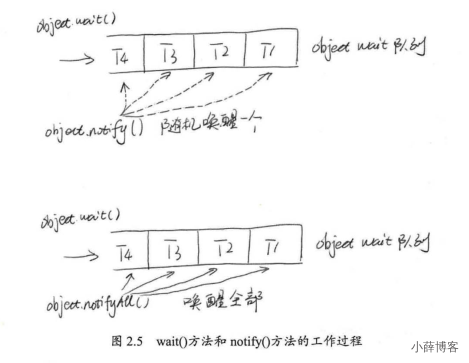 object.wait()
T4 T3 T2 T1 object wait 队列
object.notify() 随机唤醒一个
object.wait()
T4 T3 T2 T1 object wait 队列
object.notifyAll() 唤醒全部
图 2.5 wait()方法和 notify()方法的工作过程
小薛博客